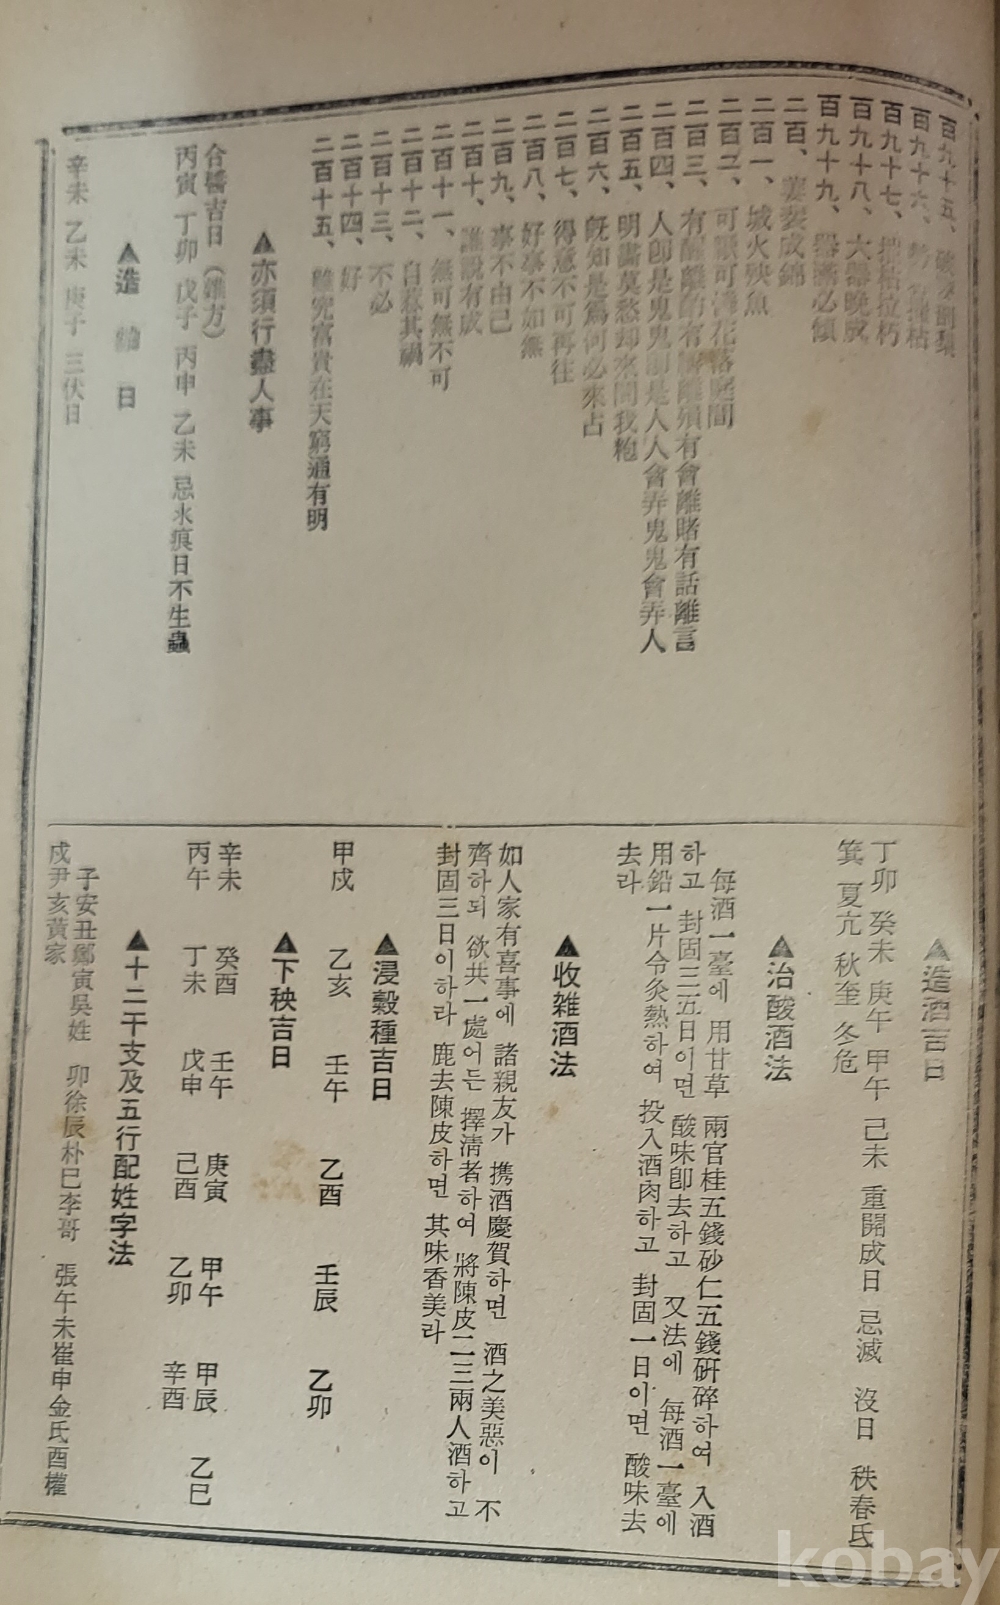 百九十五、
百九十六、
百九十七、摧枯拉朽
百九十八、大器晩成
百九十九、器滿必傾
二百、萋斐成錦
二百一、城火殃魚
二百二、可
二百三、有
二百四、人卽是鬼鬼卽是人人會弄鬼鬼會弄人
二百五、明晝莫愁却來問我
二百六、旣知是爲何必來占
二百七、得意不可再往
二百八、好事不如無
二百九、事不由己
二百十、誰說有成
二百十一、無可無不可
二百十二、自惹其禍
二百十三、不必
二百十四、好
二百十五、雖
富貴在天窮通有明
▲亦須行盡人事
合醬吉日
丙寅 丁卯 戊子 丙申 乙未 忌水痕日不生蟲
▲造 日
辛未 乙未 庚子 三伏日
▲造酒吉日
丁卯 癸未 庚午 甲午 己未 重開成日 忌滅 沒日 秩春氏
箕 夏亢 秋奎 冬危
▲治酸酒法
每酒一臺에 用甘草 兩官桂五錢砂仁五錢硏碎하여 入酒
하고 封固三五日이면 酸味卽去하고 又法에 每酒一臺에
用鉛一片令灸熱하여 投入酒肉하고 封固一日이면 酸味去
去라
▲收雜酒法
如人家有喜事에 諸親友가 携酒慶賀하면 酒之美惡이 不
齊하되 欲共一處어든 擇淸者하여 將陳皮二三兩人酒하고
封固三日이하라 鹿去陳皮하면 其味香美라
▲浸穀種吉日
甲戍 乙亥 壬午 乙酉 壬辰 乙卯
▲下秧吉日
辛未 癸酉 壬午 庚寅 甲午 甲辰 乙巳
丙午 丁未 戊申 己酉 乙卯 辛酉
▲十二干支及五行配姓字法
子安丑鄭寅吳姓 卯徐辰朴巳李哥 張午未崔申金氏酉權
戍尹亥黃家